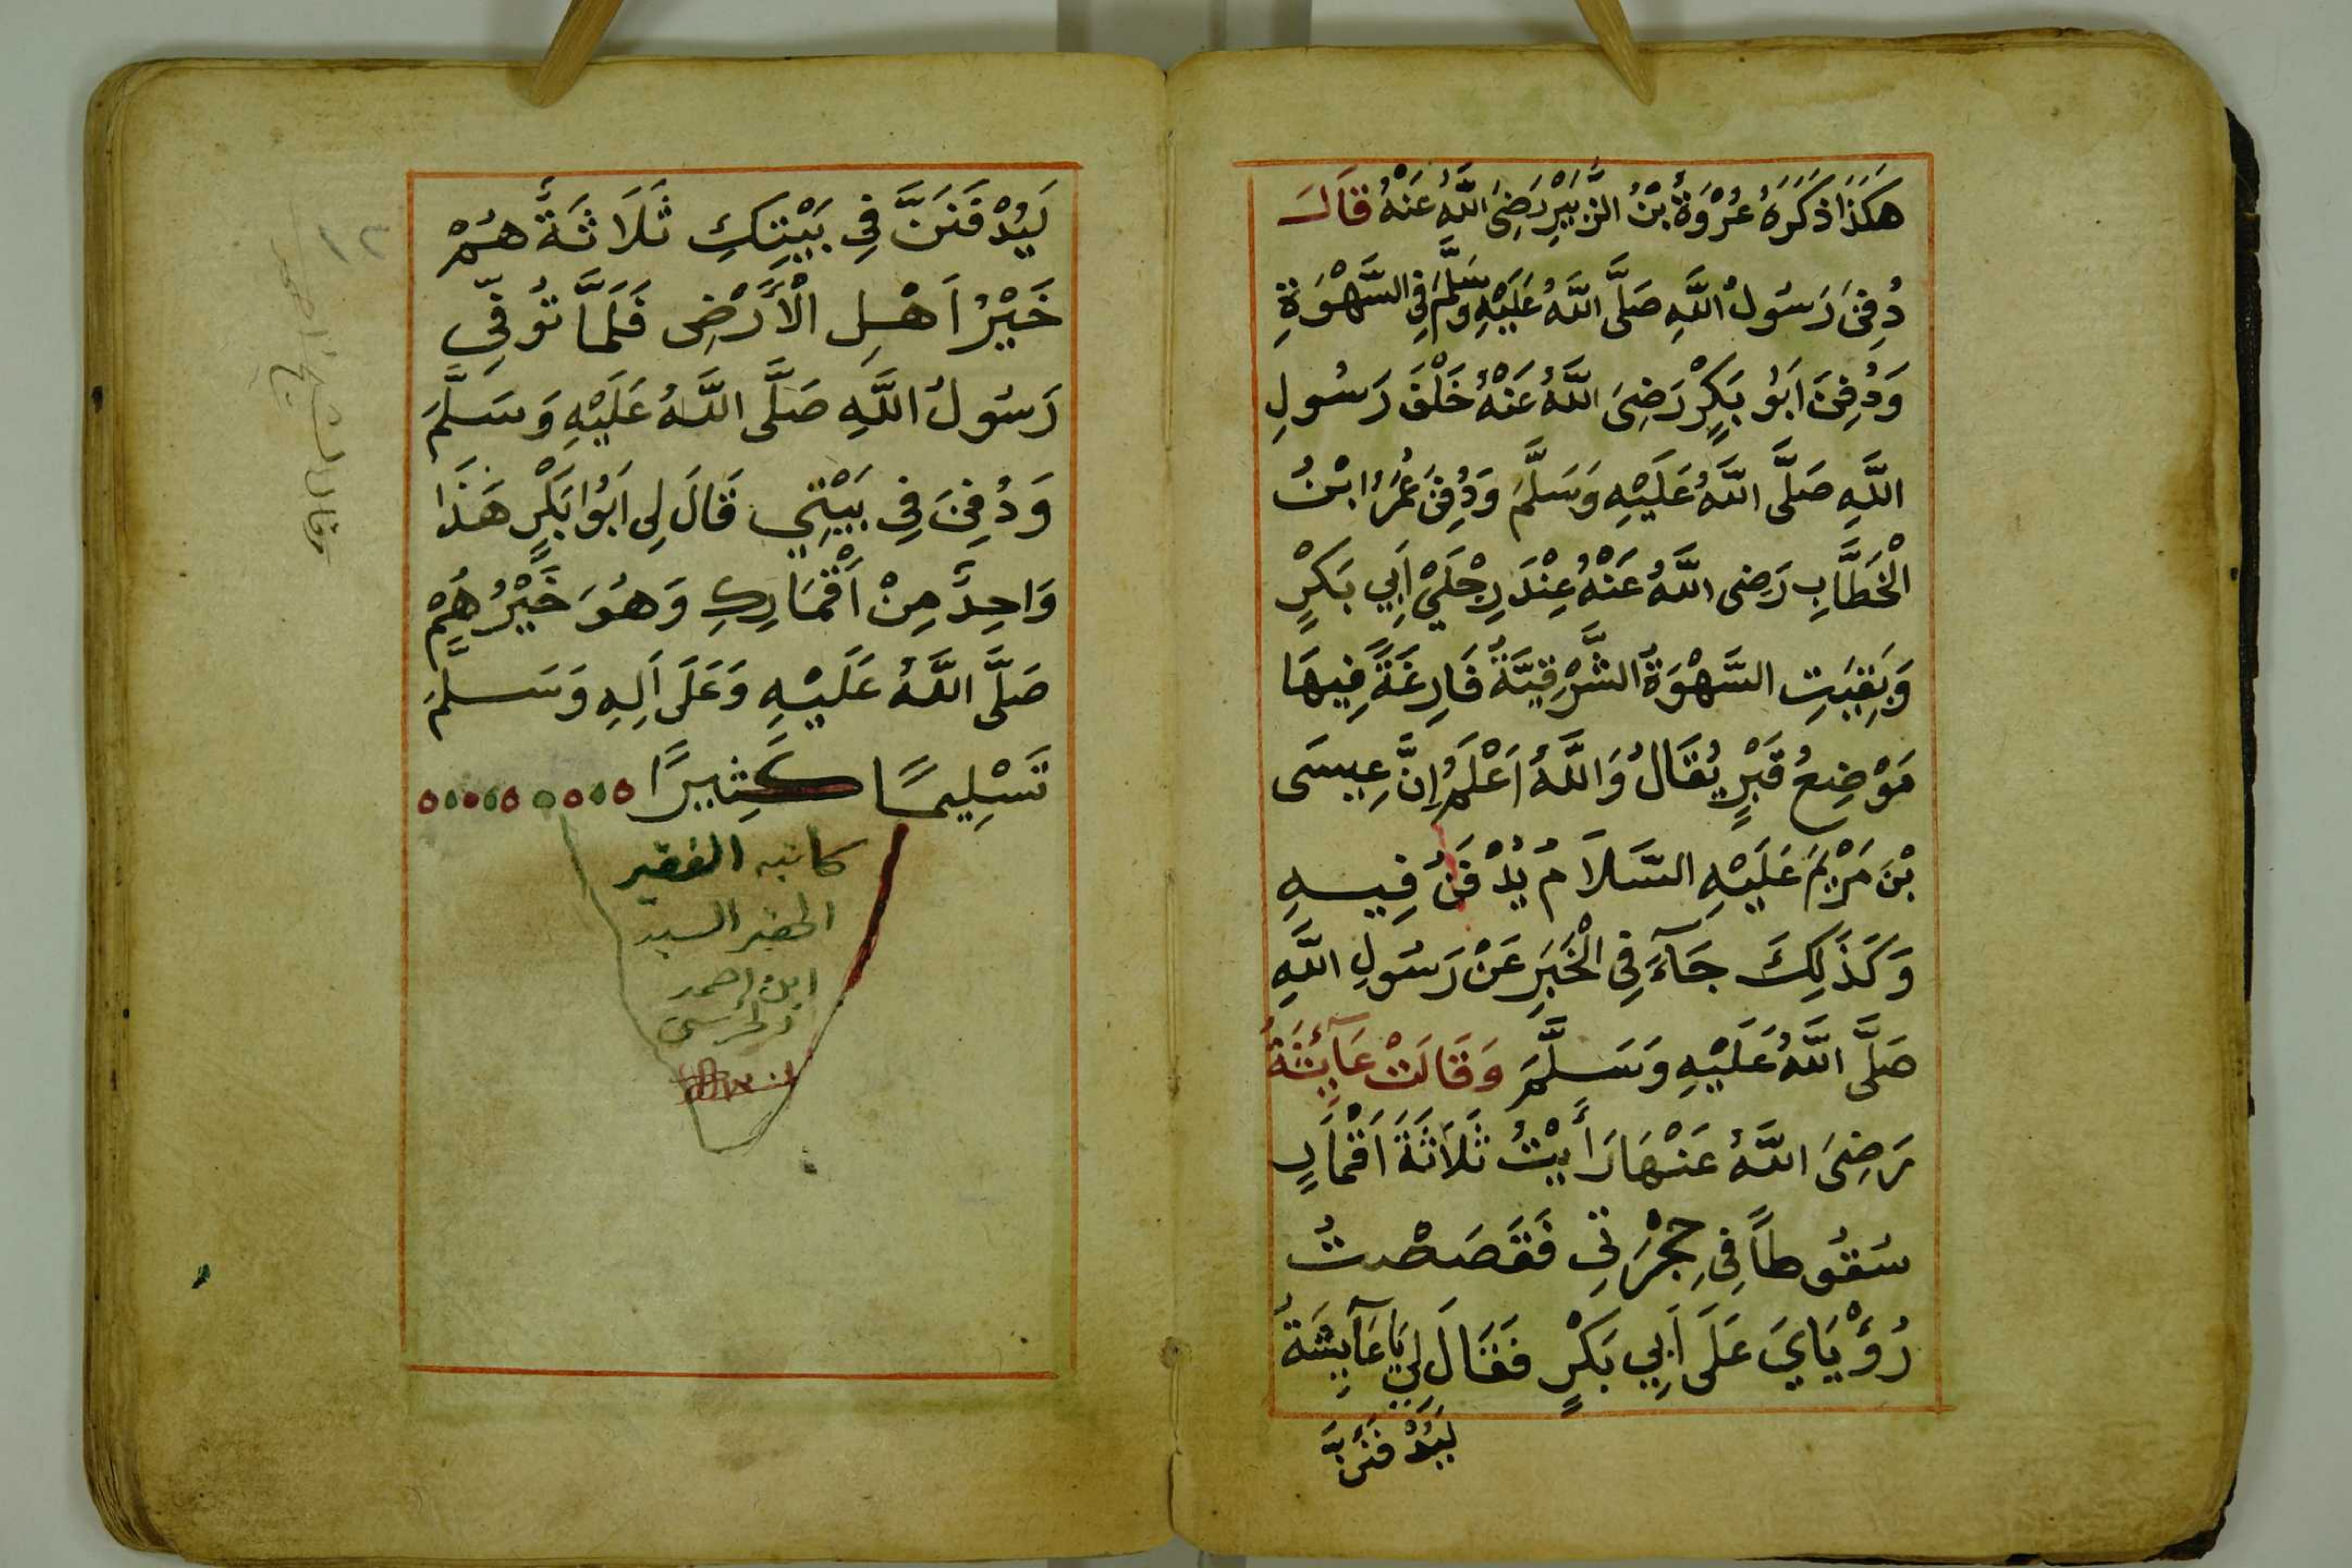 هَكَذَا ذَكَرَهُ عُرْوَةُ بْنُ الزُّبَيْرِ رَضِيَ اللَّهُ عَنْهُ قَالَ
دُفِنَ رَسُولُ اللَّهِ صَلَّى اللَّهُ عَلَيْهِ وَسَلَّمَ فِي السَّهْوَةِ
وَدُفِنَ اَبُو بَكْرٍ رَضِيَ اللَّهُ عَنْهُ خَلْفَ رَسُولِ
اللَّهِ صَلَّى اللَّهُ عَلَيْهِ وَسَلَّمَ وَدُفِنَ عُمَرُ ابْنُ
الْخَطَّابِ رَضِى اللَّهُ عَنْهُ عِنْدَ رِجْلَيْ اَبِي بَكْرٍ
وَبَقِيَتِ السَّهْوَةُ الشَّرْقِيَّةُ فَارِغَةً فِيهَا
مَوْضِعُ قَبْرٍ يُقَالُ وَاللَّهُ اَعْلَمُ اِنَّ عِيسَى
بْنَ مَرْيَمَ عَلَيْهِ السَّلَامُ يُدْفَنُ فِيهِ
وَكَذَلِكَ جَآءَ فِي الْخَبَرِ عَنْ رَسُولِ اللَّهِ
صَلَّى اللَّهُ عَلَيْهِ وَسَلَّمَ وَقَالَتْ عَآئِشَةُ
رَضِيَ اللَّهُ عَنْهَا رَأَيْتُ ثَلَاثَةَ اَقْمَارٍ
سُقُوطاً فِي حِجْرَتِي فَقَصَصْتُ
رُؤْيَايَ عَلَى اَبِي بَكْرٍ فَقَالَ لِي يَا عَآيِشَةُ
لَيُدْفَنَنَّ
لَيُدْفَنَنَّ فِي بَيْتِكِ ثَلَاثَةٌ هُمْ
خَيْرُ اَهْلِ الْأَرْضِ فَلَمَّا تُوُفِّيَ
رَسُولُ اللَّهِ صَلَّى اللَّهُ عَلَيْهِ وَسَلَّمَ
وَدُفِنَ فِي بَيْتِي قَالَ لِي اَبُوا بَكْرٍ هَذَا
وَاحِدٌ مِنْ اَقْمَارِكِ وَهُوَ خَيْرُهُمْ
صَلَّى اللَّهُ عَلَيْهِ وَعَلَى اَلِهِ وَسَلَّمَ
تَسْلِيمًا كَثِيرًا
كاتبه الفقير
الحقير السيد
ابن احمد
١٢